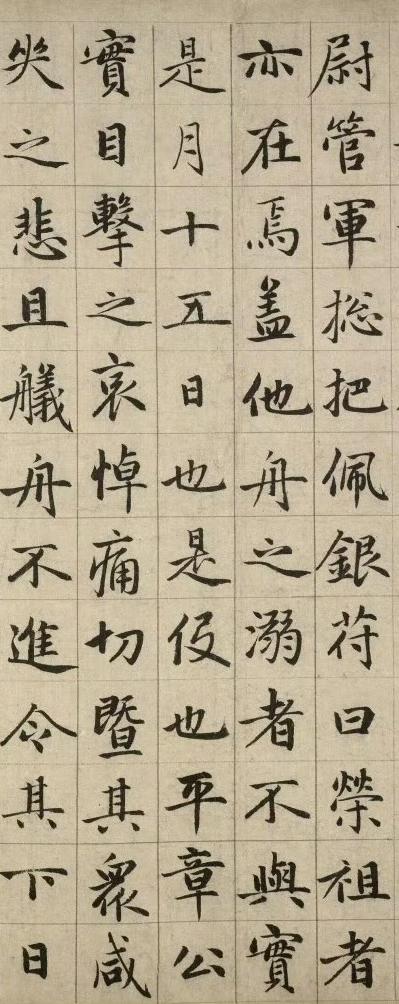 尉管軍捴把佩銀苻曰榮祖者
亦在焉盖他舟之溺者不與實
是月十五日也是役也平章公
實目擊之哀悼痛切暨其衆咸
哭之悲且艤舟不進令其下日